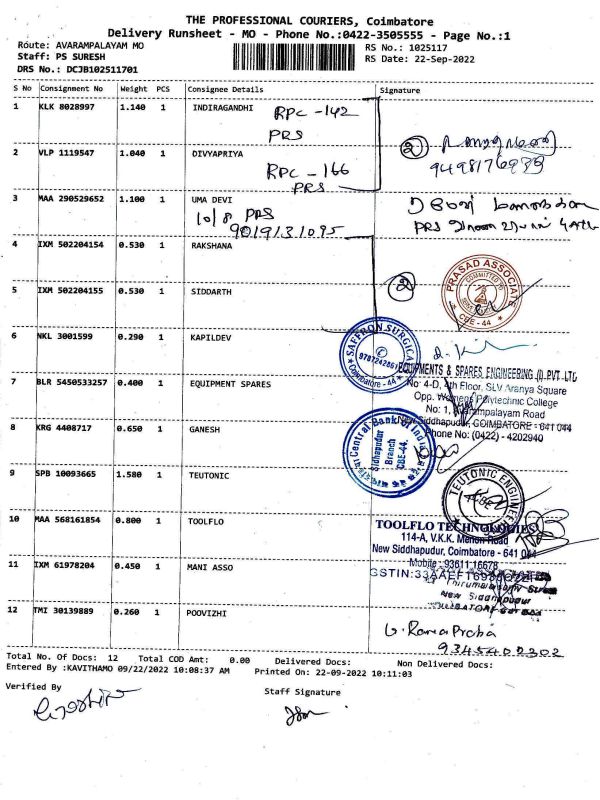 THE PROFESSIONAL COURIERS, Coimbatore
Delivery Runsheet - MO - Phone No.:0422-3505555 - Page No.:1
Route: AVARAMPALAYAM MO
RS No.: 1025117
Staff: PS SURESH
RS Date: 22-Sep-2022
DRS No.: DCJB102511701
S No Consignment No Weight PCS Consignee Details Signature
1 KLK 8028997 1.140 1 INDIRAGANDHI
RPC - 142
PRS
2 VLP 1119547 1.040 1 DIVYAPRIYA
RPC - 166
PRS
2
3 MAA 290529652 1.100 1 UMA DEVI
10/8 PRS
9019131095
PRS
4 IXM 502204154 0.530 1 RAKSHANA
PRASAD ASSOCIATE
CBE - 44
5 IXM 502204155 0.530 1 SIDDARTH
2
6 NKL 3001599 0.290 1 KAPILDEV
SAFFRON SURGICAL
Coimbatore - 44
7 BLR 5450533257 0.400 1 EQUIPMENT SPARES
EQUIPMENTS & SPARES ENGINEERING (I) PVT LTD
No: 4-D, 4th Floor, SLV Aranya Square
Opp. Womens Polytechnic College
No: 1, Avarampalayam Road
New Siddhapudur, COIMBATORE - 641 044
Phone No: (0422) - 4202940
8 KRG 4408717 0.650 1 GANESH
Central Bank of India
Sidhapudur
Branch
CBE-44.
9 SPB 10093665 1.580 1 TEUTONIC
TEUTONIC ENGINEER
10 MAA 568161854 0.800 1 TOOLFLO
TOOLFLO TECHNOLOGIES
114-A, V.K.K. Menon Road
New Siddhapudur, Coimbatore - 641 044
Mobile : 93611 16678
11 IXM 61978204 0.450 1 MANI ASSO
12 TMI 30139889 0.260 1 POOVIZHI
G. Rama Prabha
Total No. Of Docs: 12 Total COD Amt: 0.00 Delivered Docs: Non Delivered Docs:
Entered By :KAVITHAMO 09/22/2022 10:08:37 AM Printed On: 22-09-2022 10:11:03
Verified By
Staff Signature